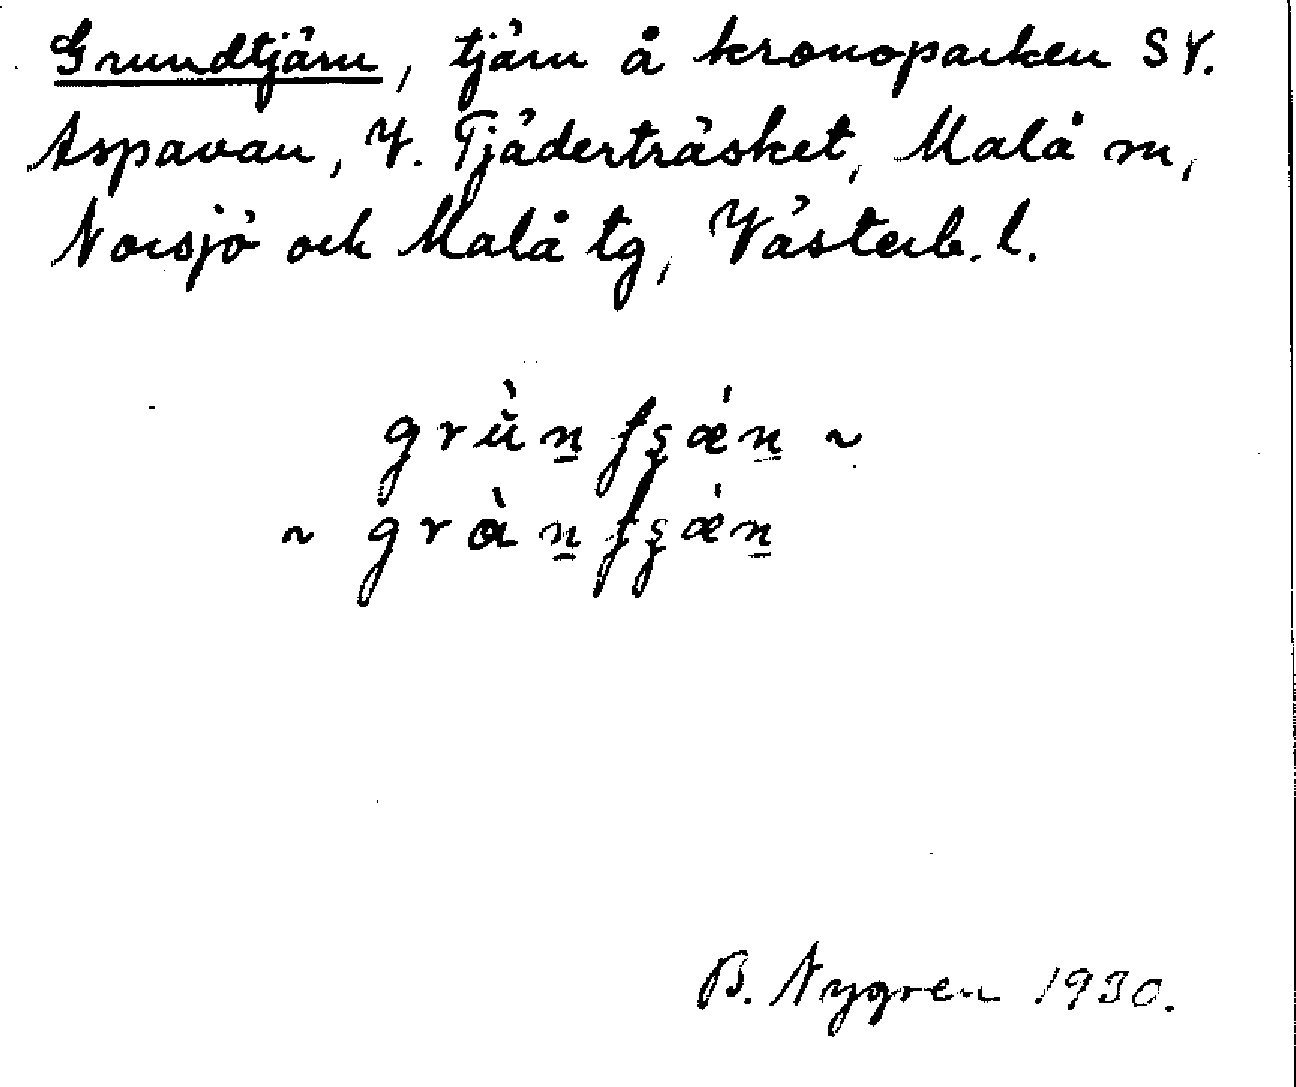 Grundtjärn, tjärn å kronoparken SV.
Aspavan, V. Tjäderträsket, Malå sn,
Norsjö och Malå tg, Västerb. l.
B. Nygren 1930.